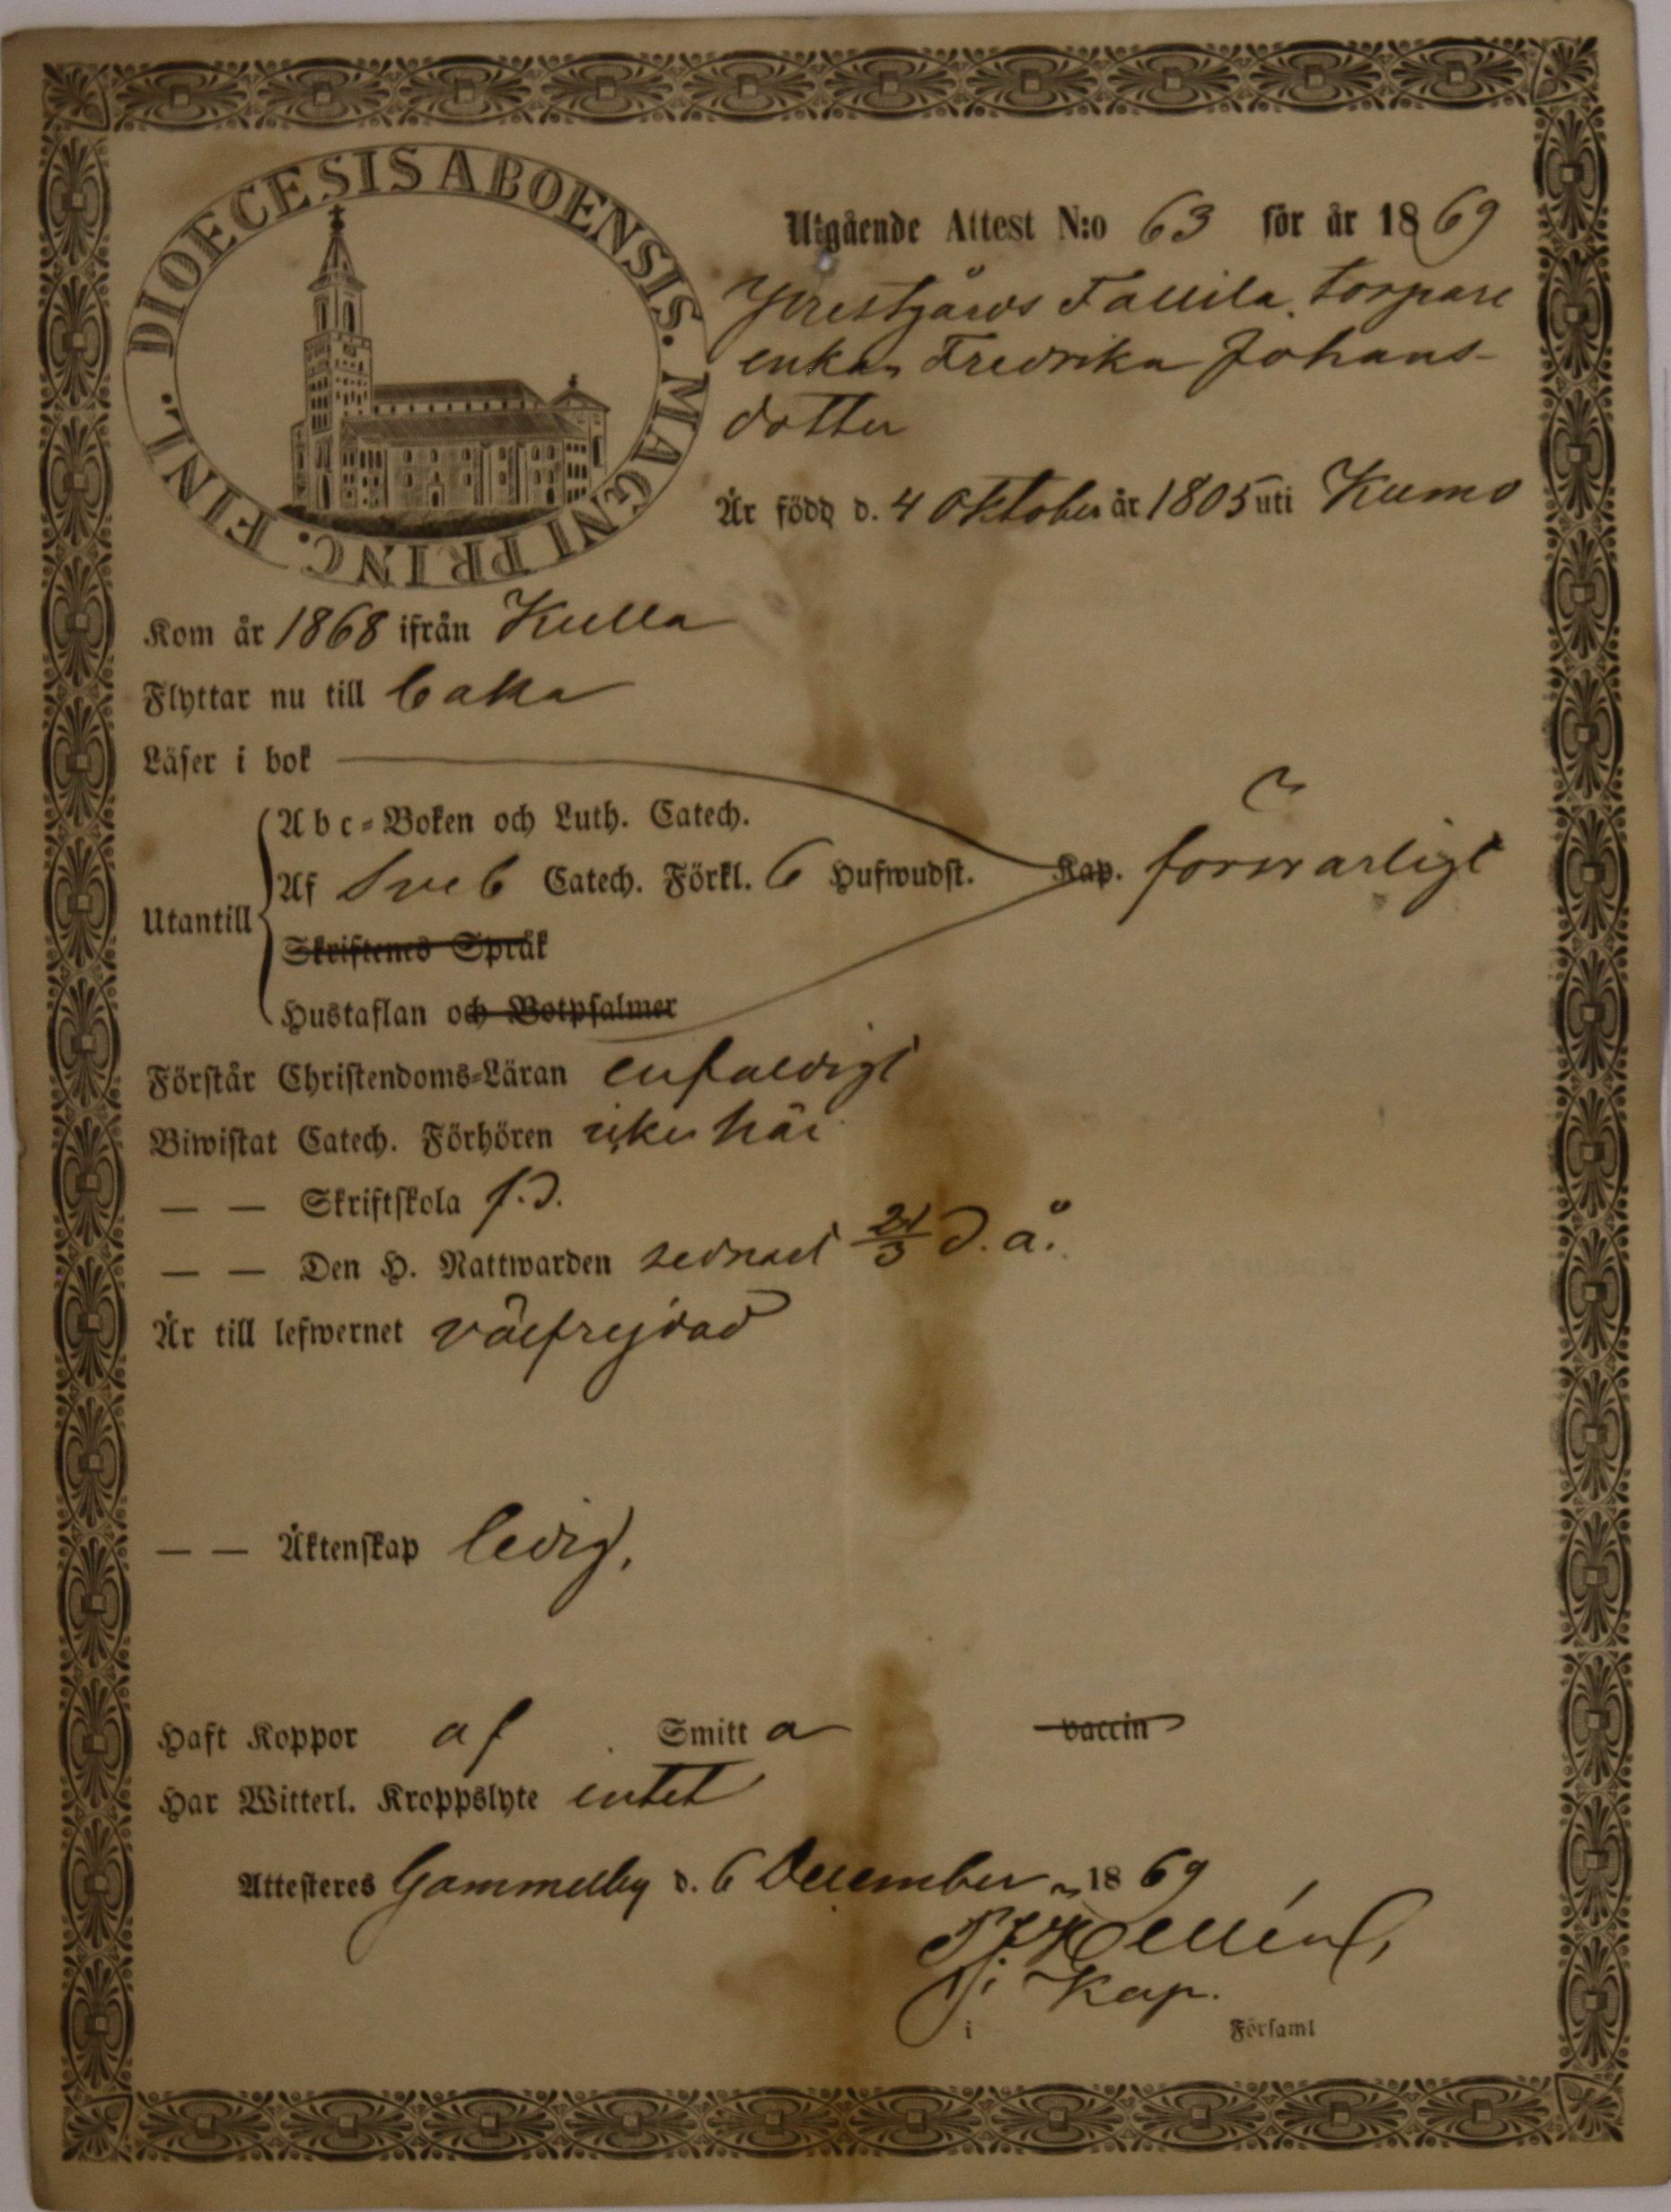 DIOECESIS ABOENSIS. MAGNI PRINC. FINL.
Utgående Attest N:o 63 för år 1869
Prestgårds Tallila torpare
enkan Fredrika Johans-
dotter
Är född d. 4 Oktober år 1805 uti Kumo
Kom år 1868 ifrån Kulla
Flyttar nu till
Läser i bok
Abc-Boken och Luth. Catech.
Af Sveb Catech. Förkl. 6 Hufwudst. Kap. förswarligt
Utantill
Skriftenes Språk
Hustaflan och Botpsalmer
Förstår Christendoms-Läran enfaldigt
Biwistat Catech. Förhören icke här
— — Skriftskola f.d.
— — Den H. Nattwarden sednast 21/3 d. å.
Är till lefwernet välfrejdad
— — Äktenskap ledig.
Haft Koppor af Smitta vaccin
Har Witterl. Kroppslyte intet
Attesteres Gammelby d. 6 December 1869
Kap.
i Församl